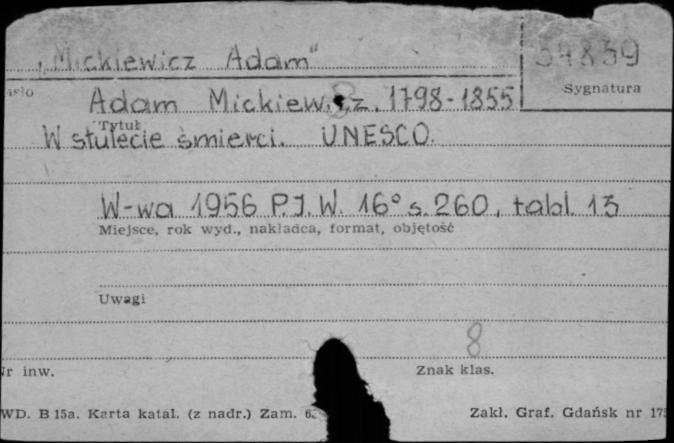 „Mickiewicz Adam"
59839
Sygnatura
Adam Mickiewicz. 1798-1855
Tytuł
W stulecie śmierci. UNESCO.
W-wa 1956 P.I.W. 16° s. 260, tabl. 13
Miejsce, rok wyd., nakładca, format, objętość
Uwagi
8
Nr inw.
Znak klas.
WD. B 15a. Karta katal. (z nadr.) Zam.
Zakł. Graf. Gdańsk nr